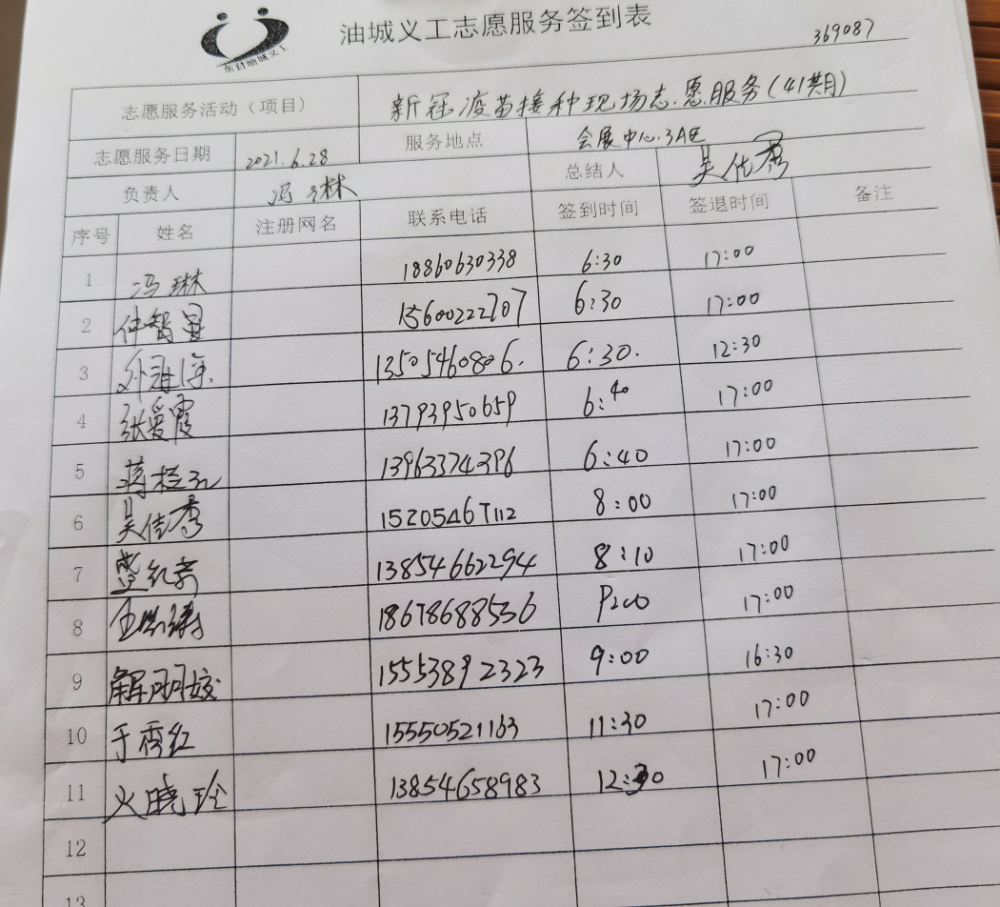 油城义工志愿服务签到表
369087
东营油城义工
志愿服务活动（项目） 新冠疫苗接种现场志愿服务(41期)
志愿服务日期 2021.6.28 服务地点 会展中心.3A区
负责人 冯琳 总结人 吴佳秀
序号 姓名 注册网名 联系电话 签到时间 签退时间 备注
1 冯琳 18860630338 6:30 17:00
2 仲智 15600222707 6:30 17:00
3 13505460806. 6:30. 12:30
4 张爱霞 13793950659 6:40 17:00
5 蒋桂 13963374396 6:40 17:00
6 吴佳秀 15205467112 8:00 17:00
7 13854662294 8:10 17:00
8 18678688536 17:00
9 解明姣 15553892323 9:00 16:30
10 于秀红 15550521163 11:30 17:00
11 晓玲 13854658983 12:30 17:00
12
13